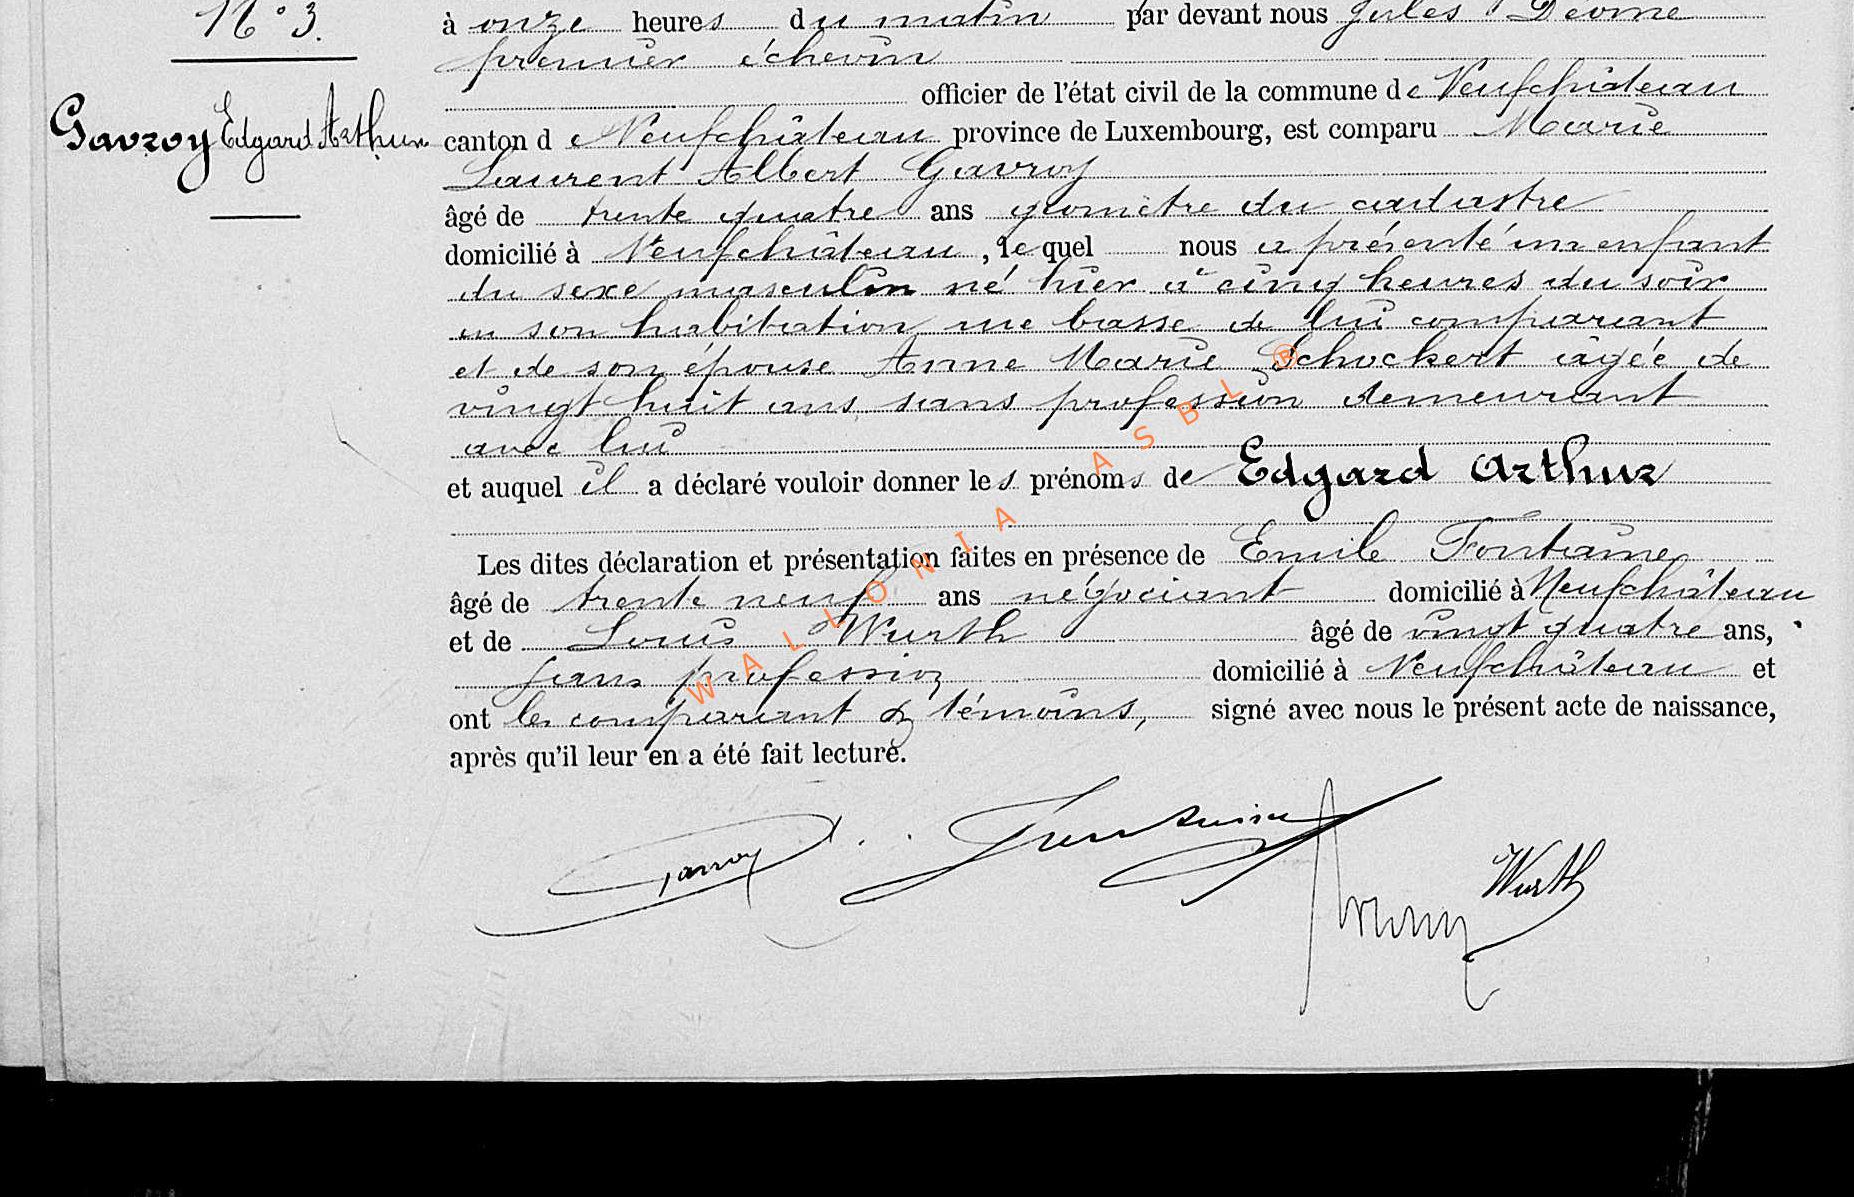 N° 3.
à onze heures du matin par devant nous Jules
premier échevin
officier de l'état civil de la commune de Neufchâteau
Gavroy Edgard Arthur
canton de Neufchâteau province de Luxembourg, est comparu Marie
Laurent Albert Gavroy
âgé de trente quatre ans géomètre du cadastre
domicilié à Neufchâteau, lequel nous a présenté un enfant
du sexe masculin né hier à cinq heures du soir
en son habitation rue basse de lui comparant
et de son épouse Anne Marie Schockert âgée de
vingt huit ans sans profession demeurant
avec lui
et auquel il a déclaré vouloir donner les prénoms de Edgard Arthur
Les dites déclaration et présentation faites en présence de Emile Fontaine
âgé de trente neuf ans négociant domicilié à Neufchâteau
et de Louis Wurth âgé de vingt quatre ans,
sans profession domicilié à Neufchâteau et
ont les comparant & témoins, signé avec nous le présent acte de naissance,
après qu'il leur en a été fait lecture.
Gavroy
Wurth
WALLONIA ASBL ®